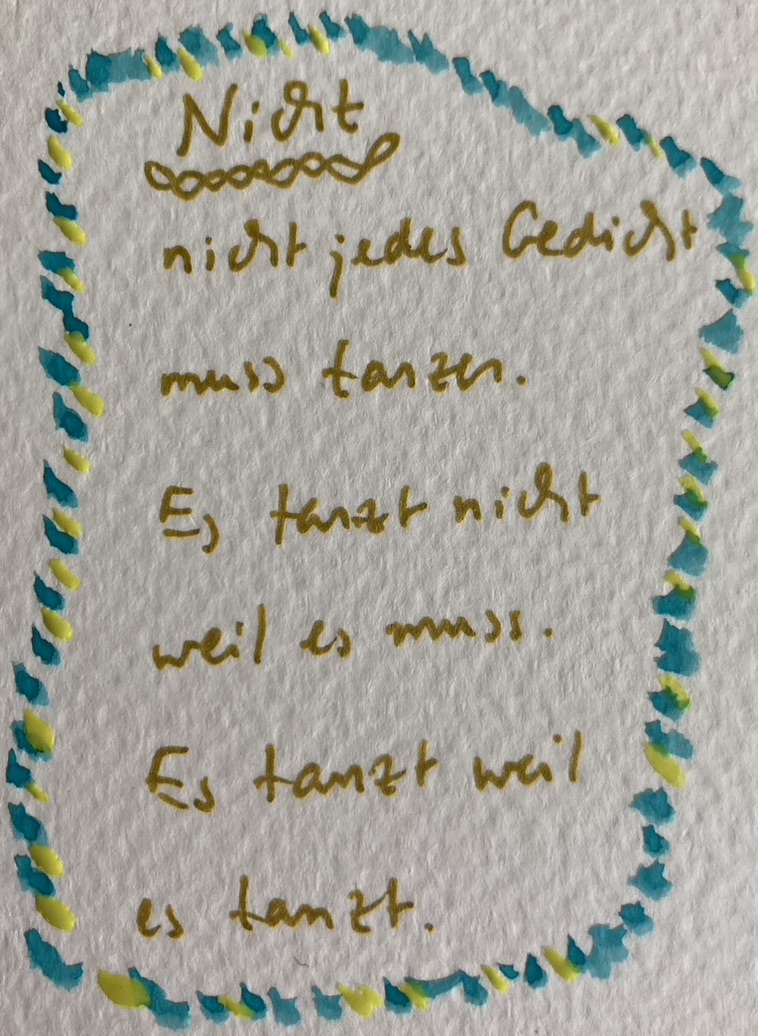 Nicht
nicht jedes Gedicht
muss tanzen.
Es tanzt nicht
weil es muss.
Es tanzt weil
es tanzt.